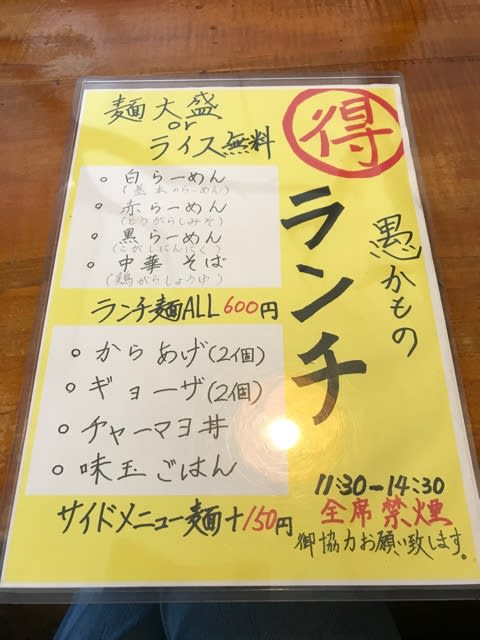 得
愚かもの
ランチ
麺大盛
or
ライス無料
○ 白らーめん
(基本のらーめん)
○ 赤らーめん
(とうがらしみそ)
○ 黒らーめん
(こがしにんにく)
○ 中華そば
(鶏がらしょうゆ)
ランチ麺ALL600円
○ からあげ(2個)
○ ギョーザ(2個)
○ チャーマヨ丼
○ 味玉ごはん
サイドメニュー麺+150円
11:30-14:30
全席禁煙
御協力お願い致します。